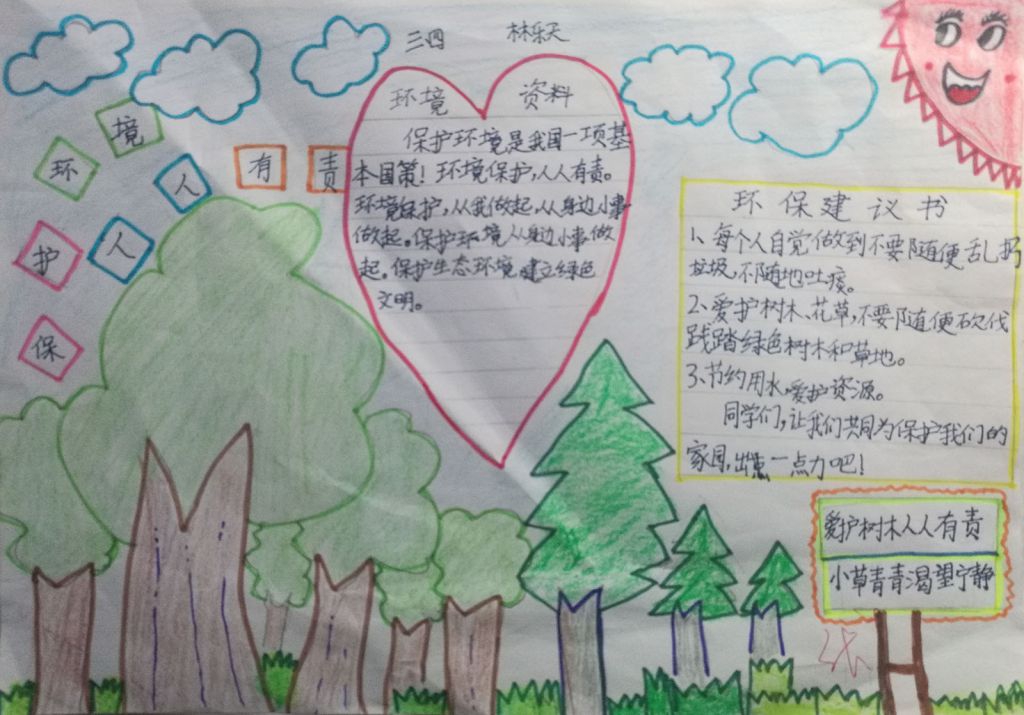 三四 林乐天
保护环境人人有责
环境 资料
保护环境是我国一项基
本国策!环境保护,人人有责。
环境保护,从我做起,从身边小事
做起。保护环境从身边小事做
起。保护生态环境,建立绿色
文明。
环保建议书
1、每个人自觉做到不要随便乱扔
垃圾,不随地吐痰。
2、爱护树木、花草,不要随便砍伐
践踏绿色树木和草地。
3、节约用水,爱护资源。
同学们,让我们共同为保护我们的
家园,出一点力吧!
爱护树木人人有责
小草青青渴望宁静